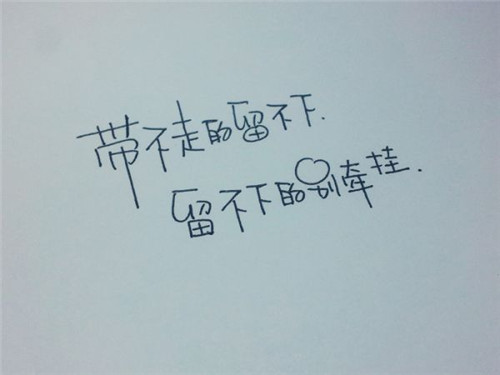 带不走的留不下.
留不下的别牵挂.